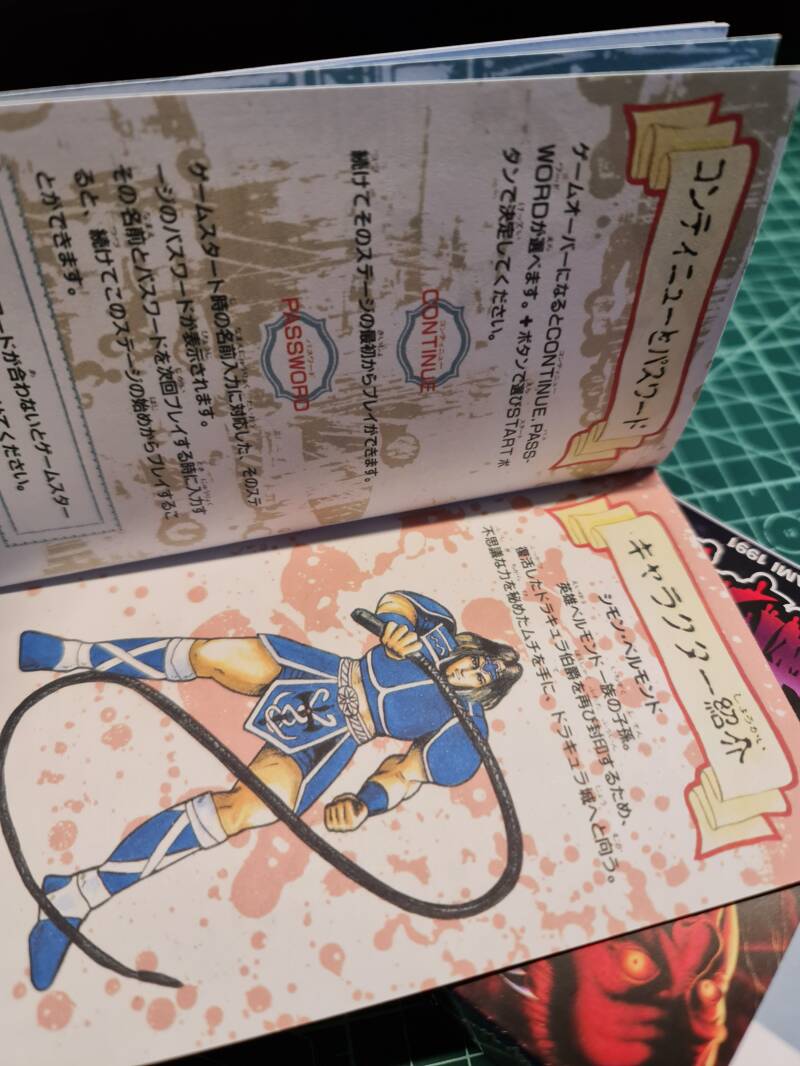 コンティニューとパスワード
ゲームオーバーになるとCONTINUE,PASS-
WORDが選べます。✚ボタンで選びSTARTボ
タンで決定してください。
CONTINUE
続けてそのステージの最初からプレイができます。
PASSWORD
ゲームスタート時の名前入力に対応した、そのステ
ージのパスワードが表示されます。
その名前とパスワードを次回プレイする時に入力す
ると、続けてこのステージの始めからプレイするこ
とができます。
ードが合わないとゲームスター
ください。
キャラクター紹介
シモン・ベルモンド
英雄ベルモンド一族の子孫。
復活したドラキュラ伯爵を再び封印するため、
不思議な力を秘めたムチを手に、ドラキュラ城へと向う。
AMI 1991